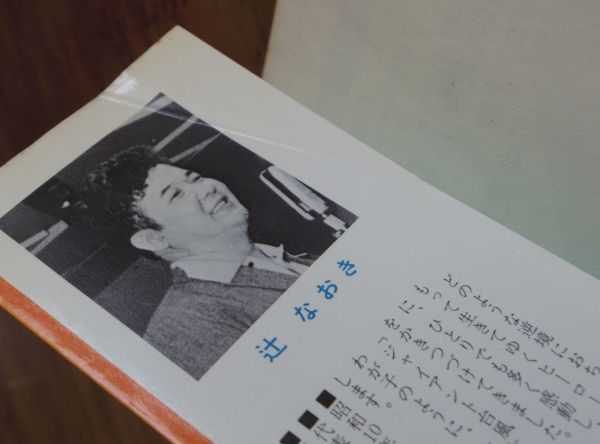 辻 なおき
どのような逆境におち
もって生きてゆくヒーロー
に、ひとりでも多く感動し、
をかきつづけてきました。
「ジャイアント台風
わが子のように、
します。
■昭和10年
■代表